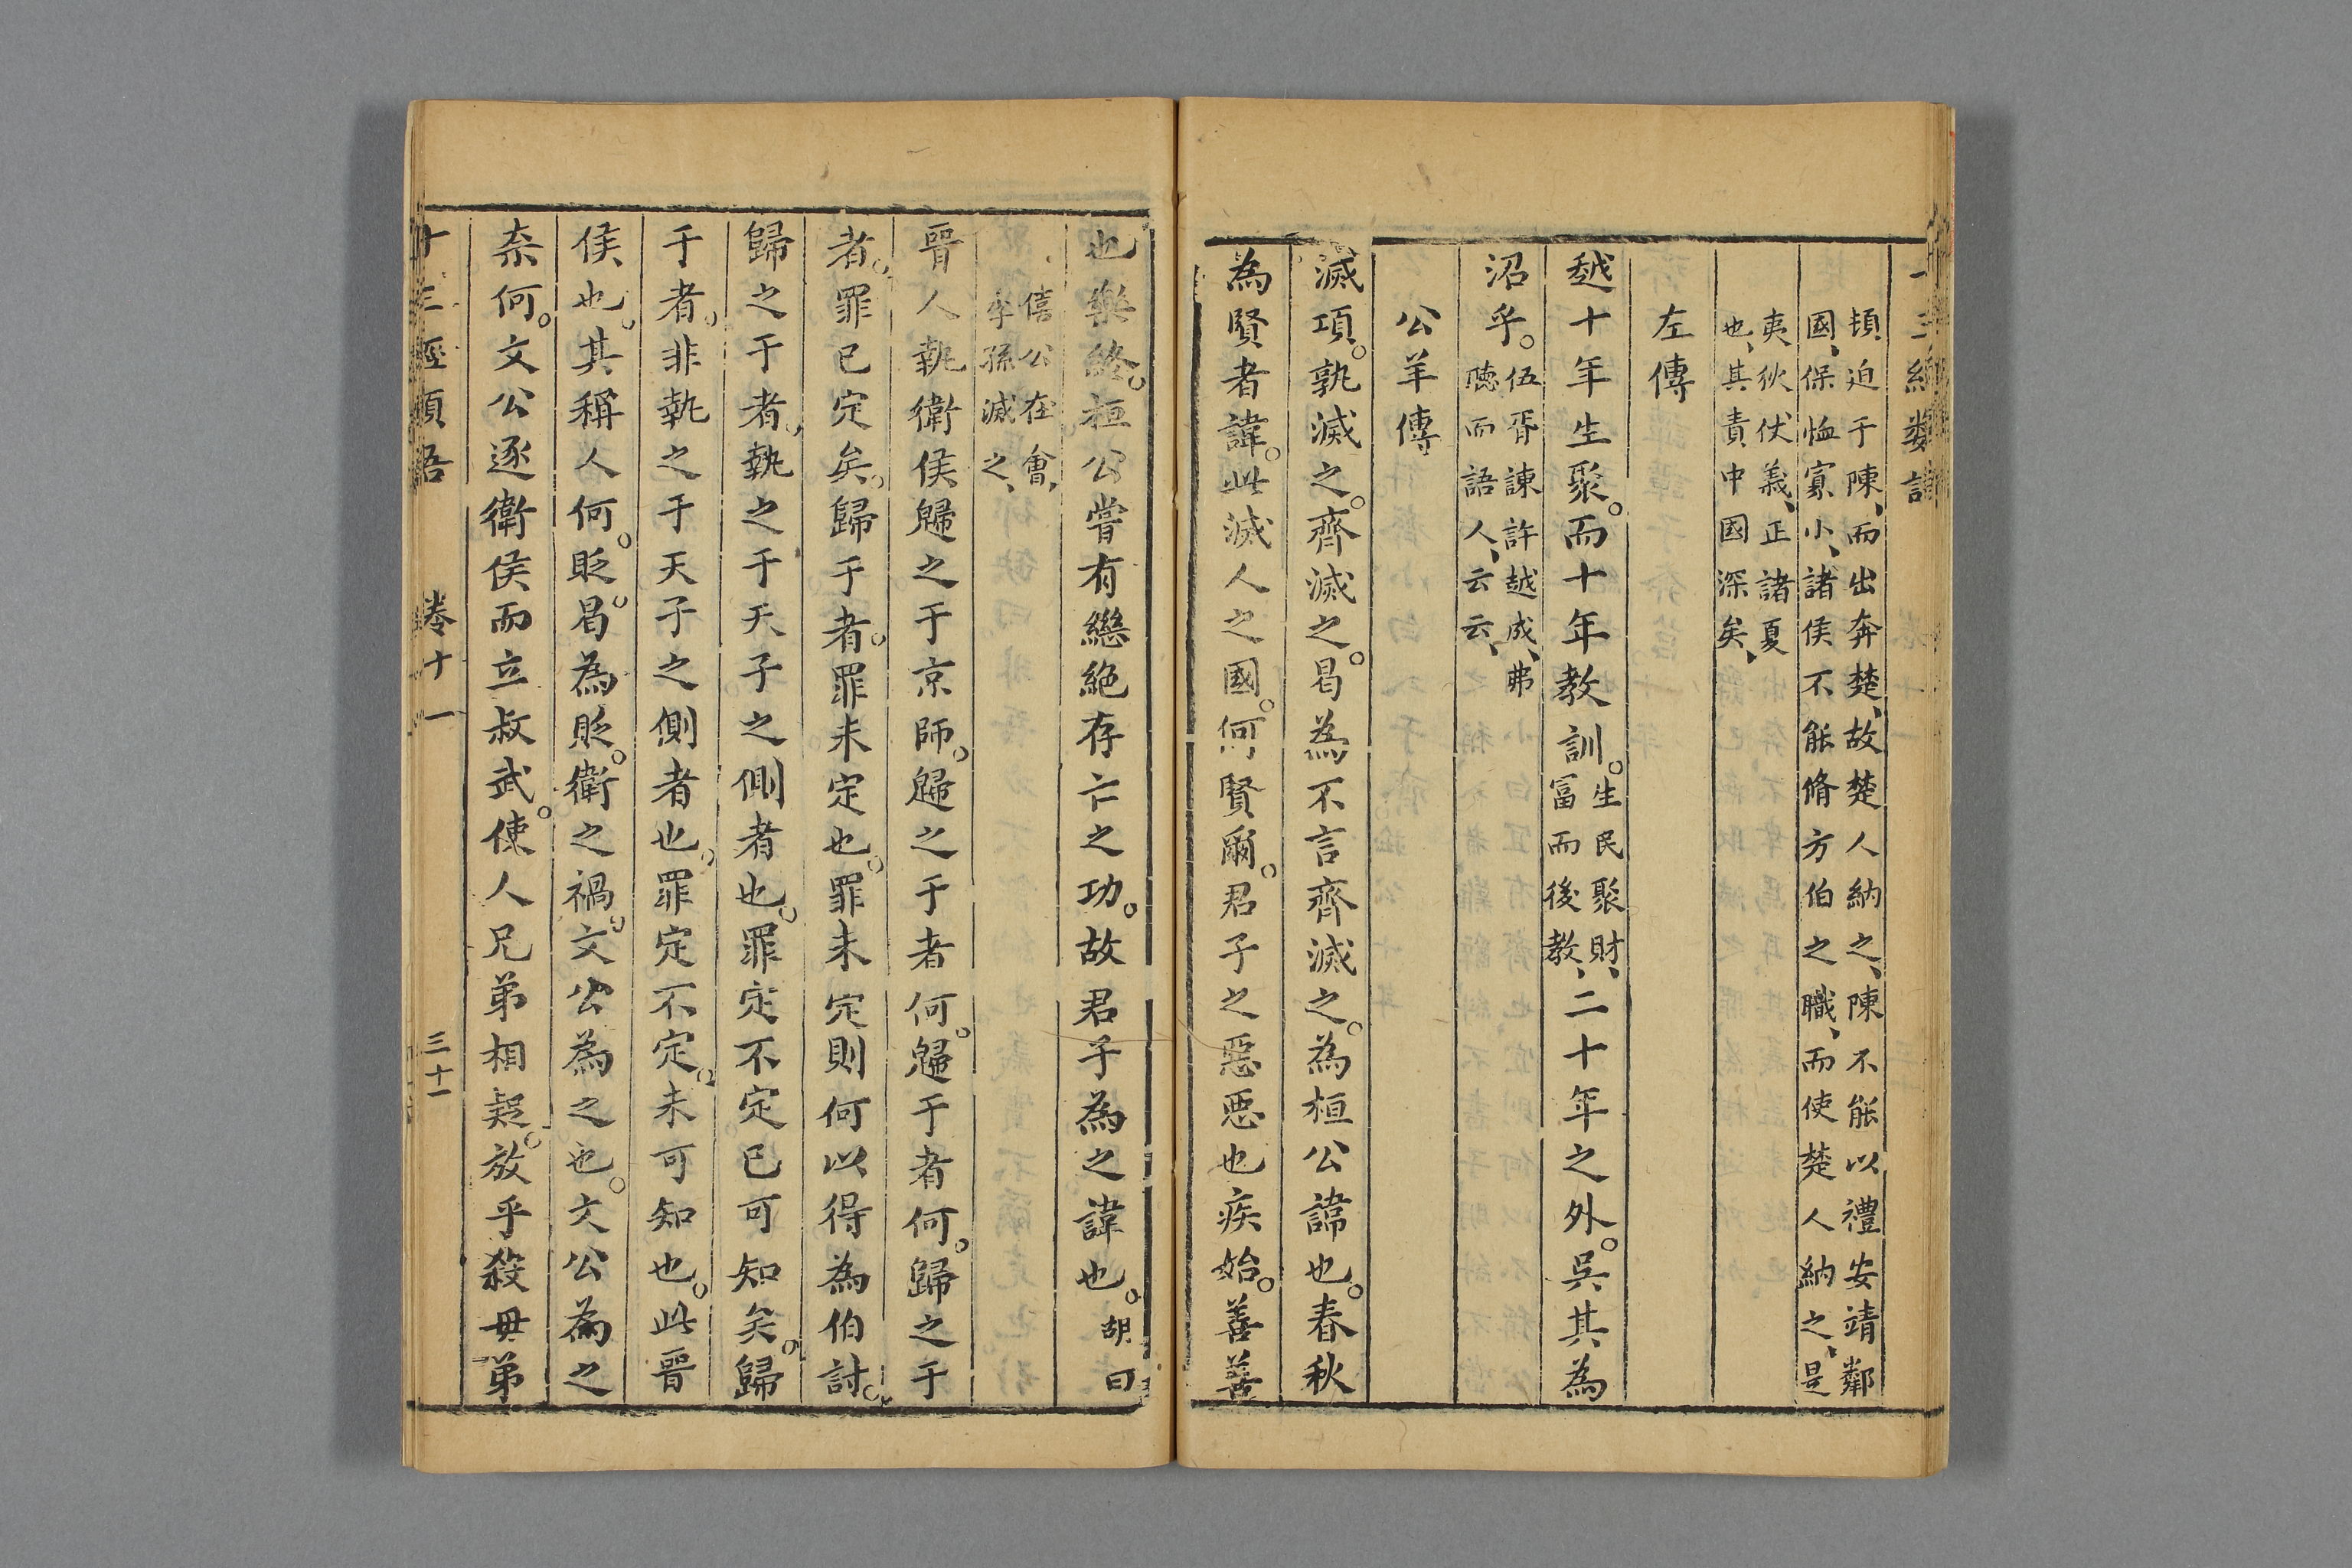 頓迫于陳、而出奔楚、故楚人納之、陳不能以禮安靖鄰
國、保恤寡小、諸侯不能脩方伯之職、而使楚人納之、是
夷狄伏義、正諸夏
也、其責中國深矣、
左傳
越十年生聚。而十年教訓。生民聚財、富而後教、二十年之外。吳其為
沼乎。伍胥諫許越成、弗聽而語人、云云、
公羊傳
滅項。孰滅之。齊滅之。曷為不言齊滅之。為桓公諱也。春秋
為賢者諱。此滅人之國。何賢爾。君子之惡惡也疾始。善善
也樂終。桓公嘗有繼絕存亡之功。故君子為之諱也。胡曰
僖公在會、
季孫滅之、
晉人執衛侯歸之于京師。歸之于者何。歸于者何。歸之于
者。罪已定矣。歸于者。罪未定也。罪未定則何以得為伯討。
歸之于者。執之于天子之側者也。罪定不定已可知矣。歸
于者。非執之于天子之側者也。罪定不定。未可知也。此晉
侯也。其稱人何。貶。曷為貶。衛之禍。文公為之也。文公為之
奈何。文公逐衛侯而立叔武。使人兄弟相疑。放乎殺母弟
十三經類語 卷十一 三十一